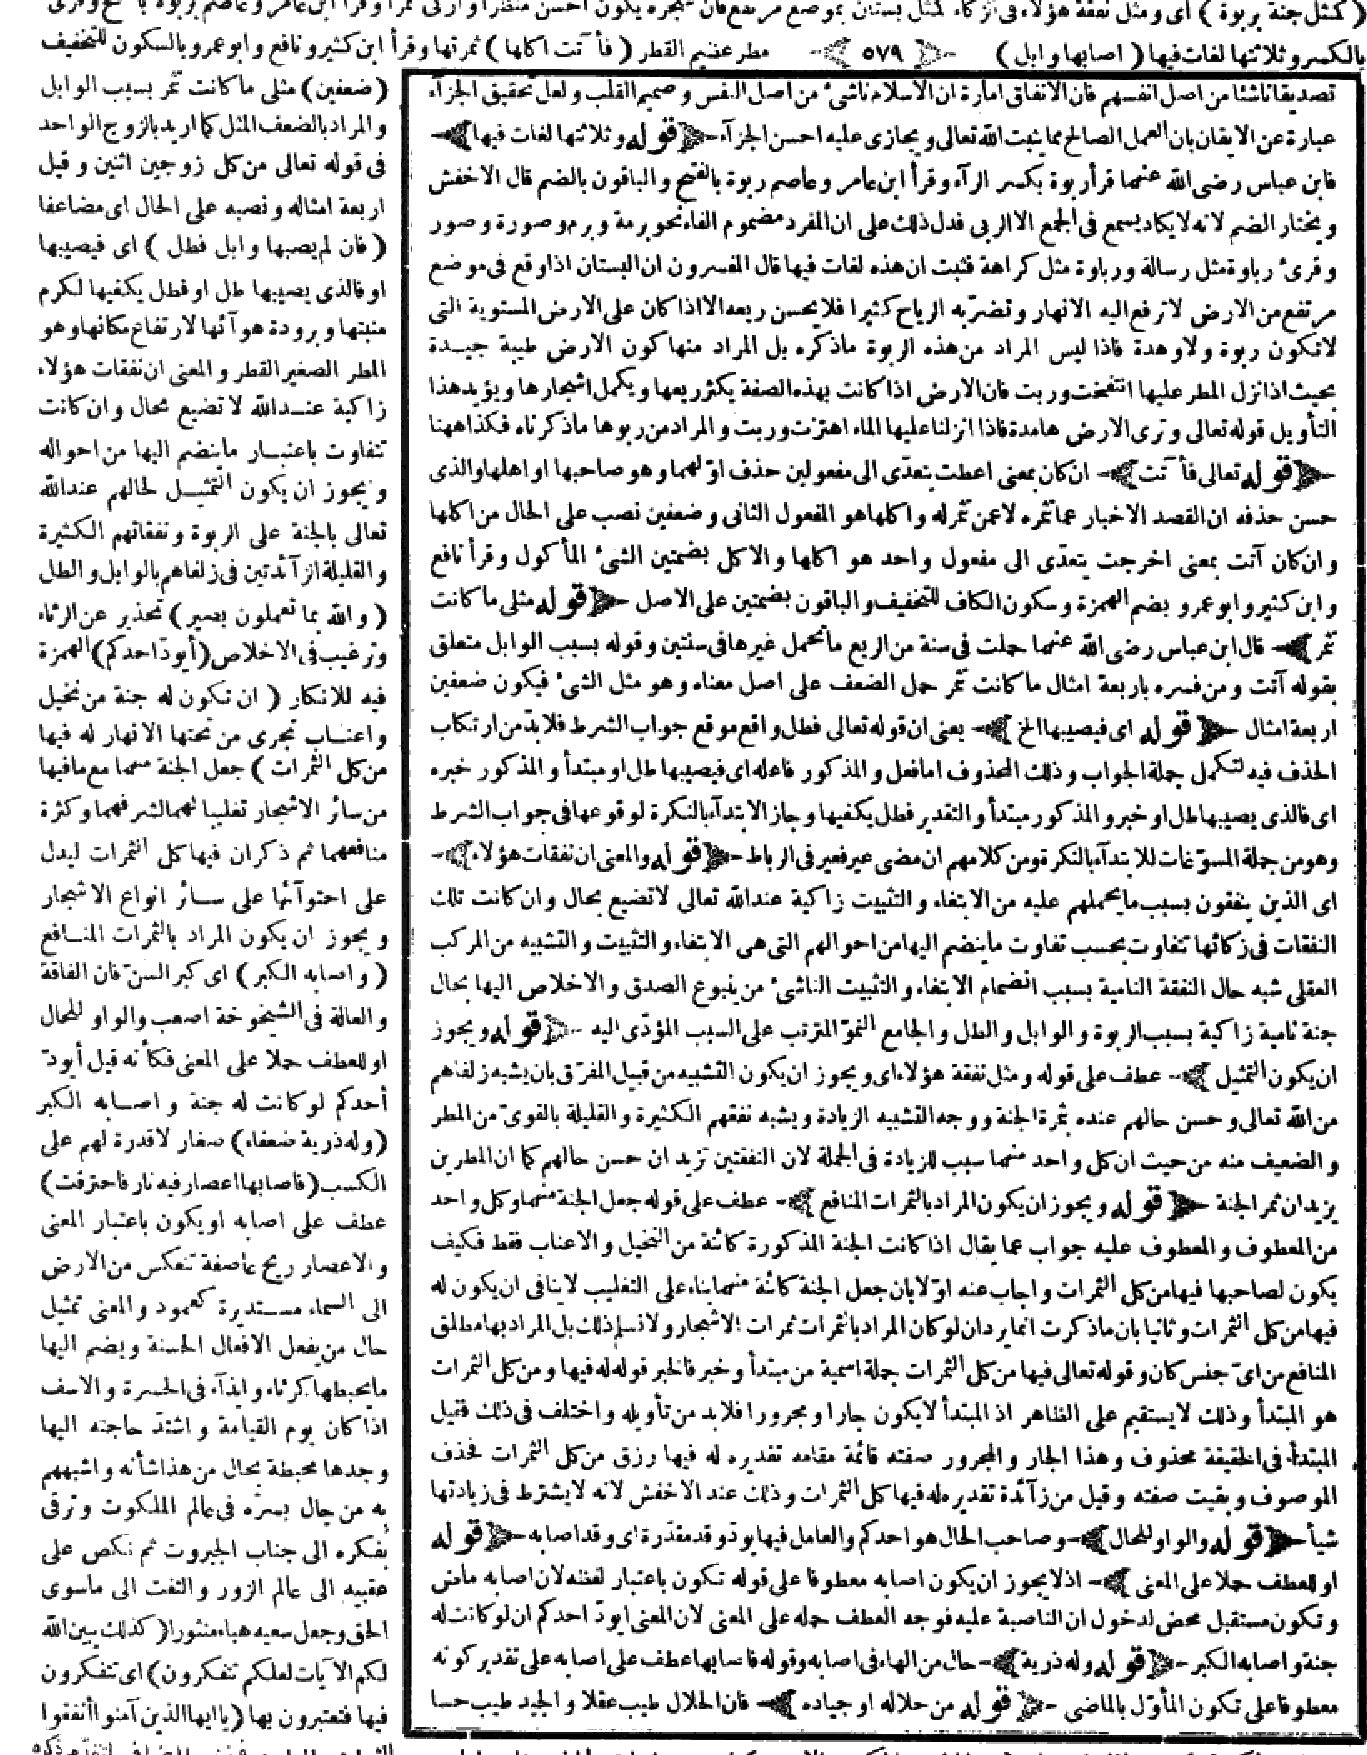 (كمثل جنة بربوة) اى ومثل نفقة هؤلاء فى الزكاء كمثل بستان بموضع مرتفع فان شجره يكون احسن منظرا وازكى ثمرا وقرأ ابن عامر وعاصم بربوة بالفتح وقرئ
بالكسر وثلاثتها لغات فيها (اصابها وابل) ٥٧٩ مطر عظيم القطر (فآتت اكلها) ثمرتها وقرأ ابن كثير ونافع وابو عمرو بالسكون للتخفيف
تصديقا ناشئا من اصل انفسهم فان الانفاق امارة ان الاسلام ناشئ من اصل النفس وصميم القلب ولعل تحقيق الجزآء
عبارة عن الايقان بان العمل الصالح مما يثبت الله تعالى ويجازى عليه احسن الجزآء قوله وثلاثتها لغات فيها
فابن عباس رضى الله عنهما قرأ ربوة بكسر الرآء وقرأ ابن عامر وعاصم ربوة بالفتح والباقون بالضم قال الاخفش
ويختار الضم لانه لا يكاد يسمع فى الجمع الا الربى فدل ذلك على ان المفرد مضموم الفاء نحو برمة وبرم وصورة وصور
وقرئ رباوة مثل رسالة ورباوة مثل كراهة فثبت ان هذه لغات فيها قال المفسرون ان البستان اذا وقع فى موضع
مرتفع من الارض لا ترفع اليه الانهار وتضربه الرياح كثيرا فلا يحسن ريعه الا اذا كان على الارض المستوية التى
لا تكون ربوة ولا وهدة فاذا ليس المراد من هذه الربوة ماذكره بل المراد منها كون الارض طيبة جيدة
بحيث اذا نزل المطر عليها انتفخت وربت فان الارض اذا كانت بهذه الصفة يكثر ريعها ويكمل اشجارها ويؤيد هذا
التأويل قوله تعالى وترى الارض هامدة فاذا انزلنا عليها الماء اهتزت وربت والمراد من ربوها ماذكرناه فكذا ههنا
قوله تعالى فآتت ان كان بمعنى اعطت يتعدى الى مفعولين حذف اولهما وهو صاحبها او اهلها والذى
حسن حذفه ان القصد الاخبار عما تثمره لا عمن تثمر له واكلها هو المفعول الثانى وضعفين نصب على الحال من اكلها
وان كان آتت بمعنى اخرجت يتعدى الى مفعول واحد هو اكلها والاكل بضمتين الشئ المأكول وقرأ نافع
وابن كثير وابو عمرو بضم الهمزة وسكون الكاف للتخفيف والباقون بضمتين على الاصل قوله مثلى ما كانت
تثمر قال ابن عباس رضى الله عنهما حملت فى سنة من الريع ما تحمل غيرها فى سنتين وقوله بسبب الوابل متعلق
بقوله آتت ومن فسره باربعة امثال ما كانت تثمر حمل الضعف على اصل معناه وهو مثل الشئ فيكون ضعفين
اربعة امثال قوله اى فيصيبها الخ يعنى ان قوله تعالى فطل واقع موقع جواب الشرط فلا بد من ارتكاب
الحذف فيه لتكمل جملة الجواب وذلك المحذوف اما فعل والمذكور فاعله اى فيصيبها طل او مبتدأ والمذكور خبره
اى فالذى يصيبها طل او خبر والمذكور مبتدأ والتقدير فطل يكفيها وجاز الابتدآء بالنكرة لوقوعها فى جواب الشرط
وهو من جملة المسوغات للابتدآء بالنكرة ومن كلامهم ان مضى عير فعير فى الرباط قوله والمعنى ان نفقات هؤلاء
اى الذين ينفقون بسبب ما يحملهم عليه من الابتغاء والتثبيت زاكية عند الله تعالى لا تضيع بحال وان كانت تلك
النفقات فى زكائها تتفاوت بحسب تفاوت ما ينضم اليها من احوالهم التى هى الابتغاء والتثبيت والتشبيه من المركب
العقلى شبه حال النفقة النامية بسبب انضمام الابتغاء والتثبيت الناشئ من ينبوع الصدق والاخلاص اليها بحال
جنة نامية زاكية بسبب الربوة والوابل والطل والجامع النمو المترتب على السبب المؤدى اليه قوله ويجوز
ان يكون التمثيل عطف على قوله ومثل نفقة هؤلاء اى ويجوز ان يكون التشبيه من قبيل المفرق بان يشبه زلفاهم
من الله تعالى وحسن حالهم عنده بثمرة الجنة ووجه التشبيه الزيادة ويشبه نفقهم الكثيرة والقليلة بالقوى من المطر
والضعيف منه من حيث ان كل واحد منهما سبب للزيادة فى الجملة لان النفقتين تزيد ان حسن حالهم كما ان المطرين
يزيدان ثمر الجنة قوله ويجوز ان يكون المراد بالثمرات المنافع عطف على قوله جعل الجنة منهما وكل واحد
من المعطوف والمعطوف عليه جواب عما يقال اذا كانت الجنة المذكورة كائنة من النخيل والاعناب فقط فكيف
يكون لصاحبها فيها من كل الثمرات واجاب عنه اولا بان جعل الجنة كائنة منهما بناء على التغليب لا ينافى ان يكون له
فيها من كل الثمرات وثانيا بان ماذكرت انما يرد ان لو كان المراد بالثمرات ثمرات الاشجار ولا نسلم ذلك بل المراد بها مطلق
المنافع من اى جنس كان وقوله تعالى فيها من كل الثمرات جملة اسمية من مبتدأ وخبر فالخبر قوله له فيها ومن كل الثمرات
هو المبتدأ وذلك لا يستقيم على الظاهر اذ المبتدأ لا يكون جارا ومجرورا فلا بد من تأويله واختلف فى ذلك فقيل
المبتدأ فى الحقيقة محذوف وهذا الجار والمجرور صفته قائمة مقامه تقديره له فيها رزق من كل الثمرات فحذف
الموصوف وبقيت صفته وقيل من زآئدة تقديره له فيها كل الثمرات وذلك عند الاخفش لانه لا يشترط فى زيادتها
شيأ قوله والواو للحال وصاحب الحال هو احدكم والعامل فيها يود وقد مقدرة اى وقد اصابه قوله
او للعطف حملا على المعنى اذ لا يجوز ان يكون اصابه معطوفا على قوله تكون باعتبار لفظه لان اصابه ماض
وتكون مستقبل محض لدخول ان الناصبة عليه فوجه العطف حمله على المعنى لان المعنى ايود احدكم ان لو كانت له
جنة واصابه الكبر قوله وله ذرية حال من الهاء فى اصابه وقوله فاصابها عطف على اصابه على تقدير كونه
معطوفا على تكون المأول بالماضى قوله من حلاله او جياده فان الحلال طيب عقلا والجيد طيب حسا
(ضعفين) مثلى ما كانت تثمر بسبب الوابل
والمراد بالضعف المثل كما اريد بالزوج الواحد
فى قوله تعالى من كل زوجين اثنين وقيل
اربعة امثاله ونصبه على الحال اى مضاعفا
(فان لم يصبها وابل فطل) اى فيصيبها
او فالذى يصيبها طل او فطل يكفيها لكرم
منبتها وبرودة هوآئها لارتفاع مكانها وهو
المطر الصغير القطر والمعنى ان نفقات هؤلاء
زاكية عند الله لا تضيع بحال وان كانت
تتفاوت باعتبار ما ينضم اليها من احواله
ويجوز ان يكون التمثيل لحالهم عند الله
تعالى بالجنة على الربوة ونفقاتهم الكثيرة
والقليلة الزآئدتين فى زلفاهم بالوابل والطل
(والله بما تعملون بصير) تحذير عن الرئاء
وترغيب فى الاخلاص (أيود احدكم) الهمزة
فيه للانكار (ان تكون له جنة من نخيل
واعناب تجرى من تحتها الانهار له فيها
من كل الثمرات) جعل الجنة منهما مع ما فيها
من سائر الاشجار تغليبا لهما لشرفهما وكثرة
منافعهما ثم ذكر ان فيها كل الثمرات ليدل
على احتوآئها على سائر انواع الاشجار
ويجوز ان يكون المراد بالثمرات المنافع
(واصابه الكبر) اى كبر السن فان الفاقة
والعالة فى الشيخوخة اصعب والواو للحال
او للعطف حملا على المعنى فكأنه قيل أيود
أحدكم لو كانت له جنة واصابه الكبر
(وله ذرية ضعفاء) صغار لا قدرة لهم على
الكسب (فاصابها اعصار فيه نار فاحترقت)
عطف على اصابه او يكون باعتبار المعنى
والاعصار ريح عاصفة تنعكس من الارض
الى السماء مستديرة كعمود والمعنى تمثيل
حال من يفعل الافعال الحسنة ويضم اليها
ما يحبطها كرئاء وايذآء فى الحسرة والاسف
اذا كان يوم القيامة واشتد حاجته اليها
وجدها محبطة بحال من هذا شأنه واشبههم
به من جال بسره فى عالم الملكوت وترقى
بفكره الى جناب الجبروت ثم نكص على
عقبيه الى عالم الزور والتفت الى ماسوى
الحق وجعل سعيه هباء منثورا (كذلك يبين الله
لكم الآيات لعلكم تتفكرون) اى تتفكرون
فيها فتعتبرون بها (ياايها الذين آمنوا أنفقوا